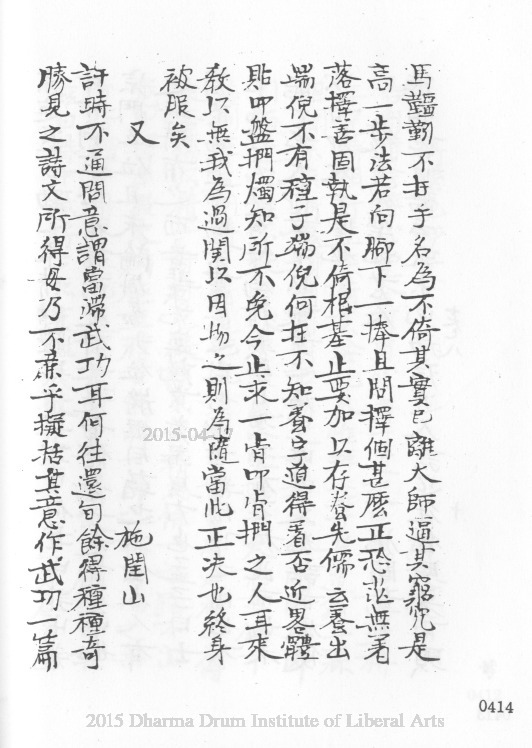 馬鞿靮不于手名為不倚其實已離大師逼其窮究是
高一步法若向腳下一捧且問擇個甚麼正恐茫無著
落擇善固執是不倚根基止要加以存養先儒云養出
端倪不有種子端倪何在不知養字道得著否近畧體
貼叩盤捫燭知所不免今止求一肯叩肯捫之人耳來
教以無我為過関以因物之則為隨當此正决也終身
被服矣
又 施閏山
許時不通問意謂當滯武功耳何往還旬餘得種種奇
勝見之詩文所得毋乃不廉乎擬括其意作武功一篇
0414
2015-04-27
2015 Dharma Drum Institute of Liberal Arts